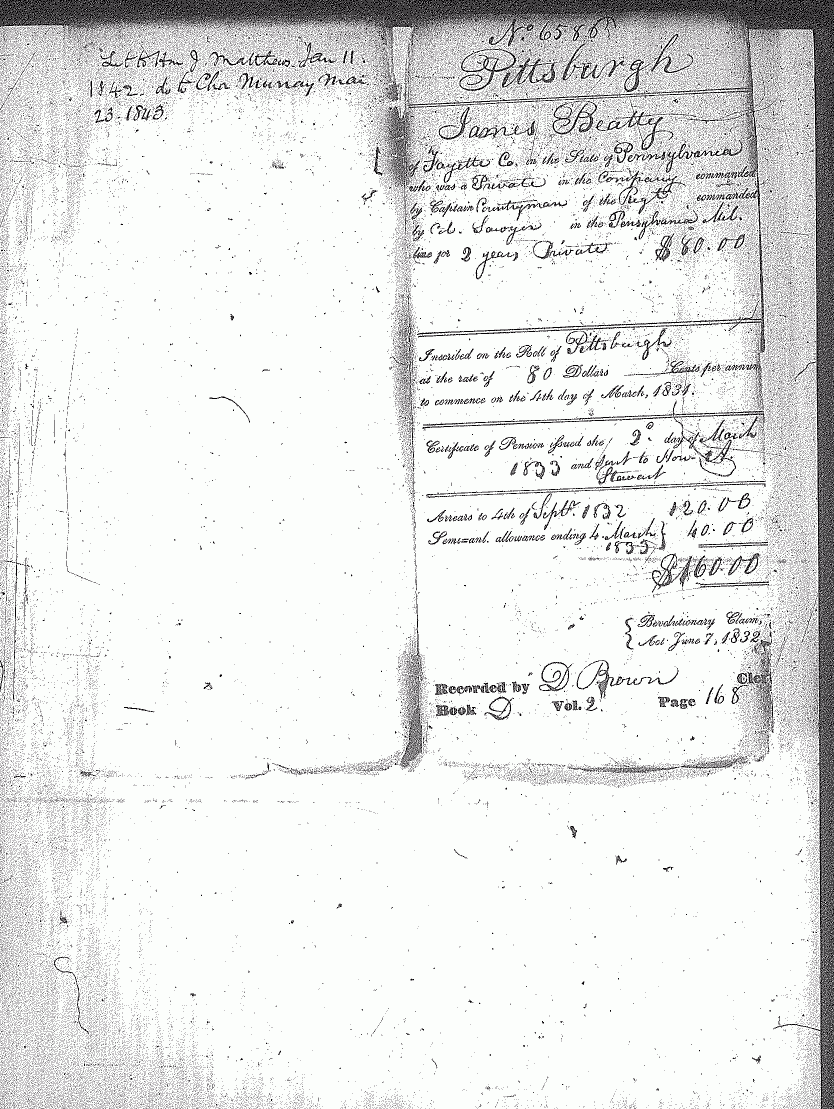 Let to Wm J. Matthews Jan 11.
1842. do to Cha Murray Mar
23. 1843.
No 6586
Pittsburgh
James Beatty
of Fayette Co. in the State of Pennsylvania
who was a Private in the Company commanded
by Captain Countryman of the Regt. commanded
by Col. Sawyer in the Pensylvania Mil.
line for 2 years Private $ 80.00
Inscribed on the Roll of Pittsburgh
at the rate of 80 Dollars Cents per annum
to commence on the 4th day of March, 1831.
Certificate of Pension issued the 2d. day of March
1833 and sent to Hon. A.
Stewart
Arrears to 4th of Septr. 1832 120.00
Semi-anl. allowance ending 4 March 40.00
1833
$160.00
Revolutionary Claim,
Act June 7, 1832.
Recorded by D. Brown Cler
Book D. Vol. 2. Page 168